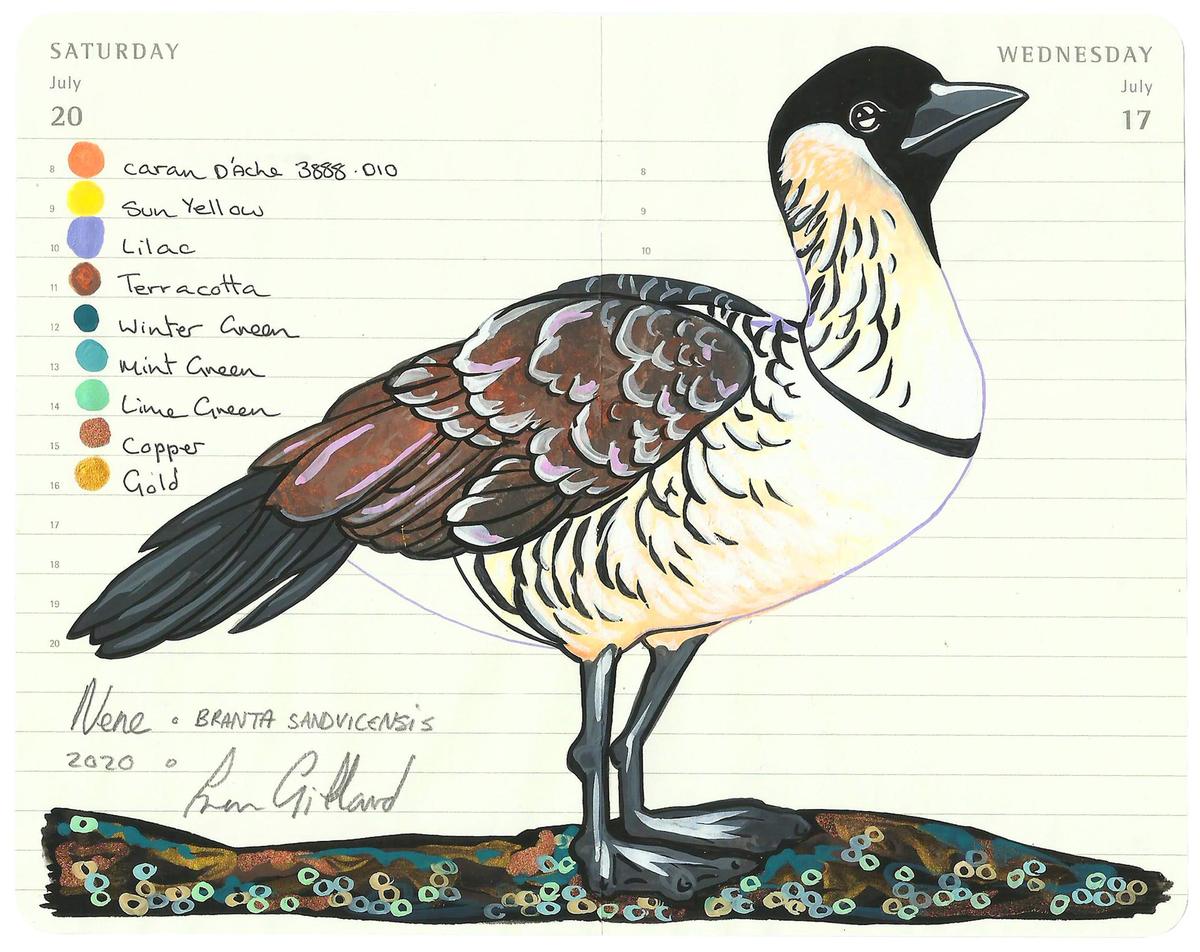 SATURDAY
July
20
WEDNESDAY
July
17
8 Caran D'Ache 3888.010
9 Sun Yellow
10 Lilac
11 Terracotta
12 Winter Green
13 Mint Green
14 Lime Green
15 Copper
16 Gold
17
18
19
20
8
9
10
Nene • BRANTA SANDVICENSIS
2020 •